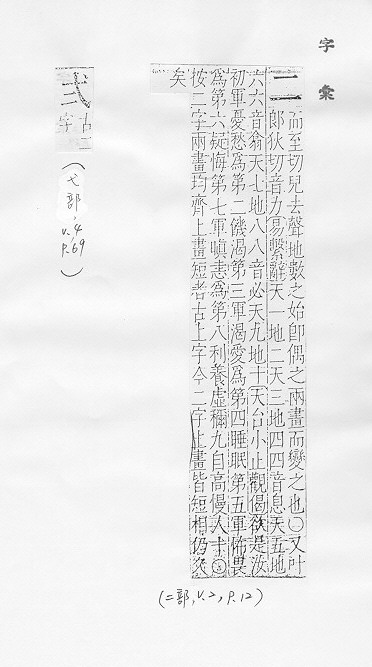 字彙
二
而至切兒去聲地數之始即偶之兩畫而變之也〇又叶
郎狄切音力易繫辭天一地二天三地四四音息天五地
六六音翁天七地八八音必天九地十天台小止觀偈欲是汝
初軍憂愁爲第二饑渴第三軍渴愛爲第四睡眠第五軍怖畏
爲第六疑悔第七軍嗔恚爲第八利養虛稱九自高慢人十〇
按二字兩畫均齊上畫短者古上字今二字上畫皆短相仍久
矣
(二部,v.2,p.12)
弍
古二
字
(弋部,v.4
p.69)